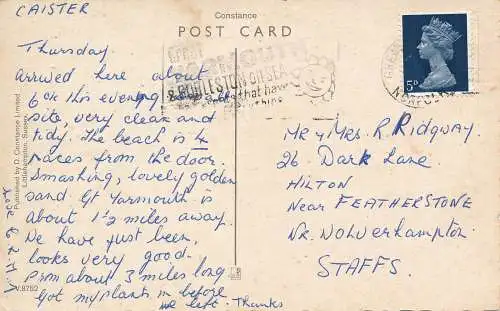 CAISTER
Constance
POST CARD
Thursday
Arrived here about
6 o/c this evening, small
site, very clean and
tidy. The beach is 4
paces from the door.
Smashing, lovely golden
sand. Gt Yarmouth is
about 1½ miles away.
We have just been,
looks very good.
Prom about 3 miles long
Got my plants in before
we left. Thanks
Published by D. Constance Limited
Littlehampton, Sussex
V.8752
GREAT
YARMOUTH
& GORLESTON ON SEA
that have
5D
NORFOLK
Mr & Mrs. R. Ridgway,
26 Dark Lane,
HILTON
Near FEATHERSTONE
Nr. Wolverhampton
STAFFS.